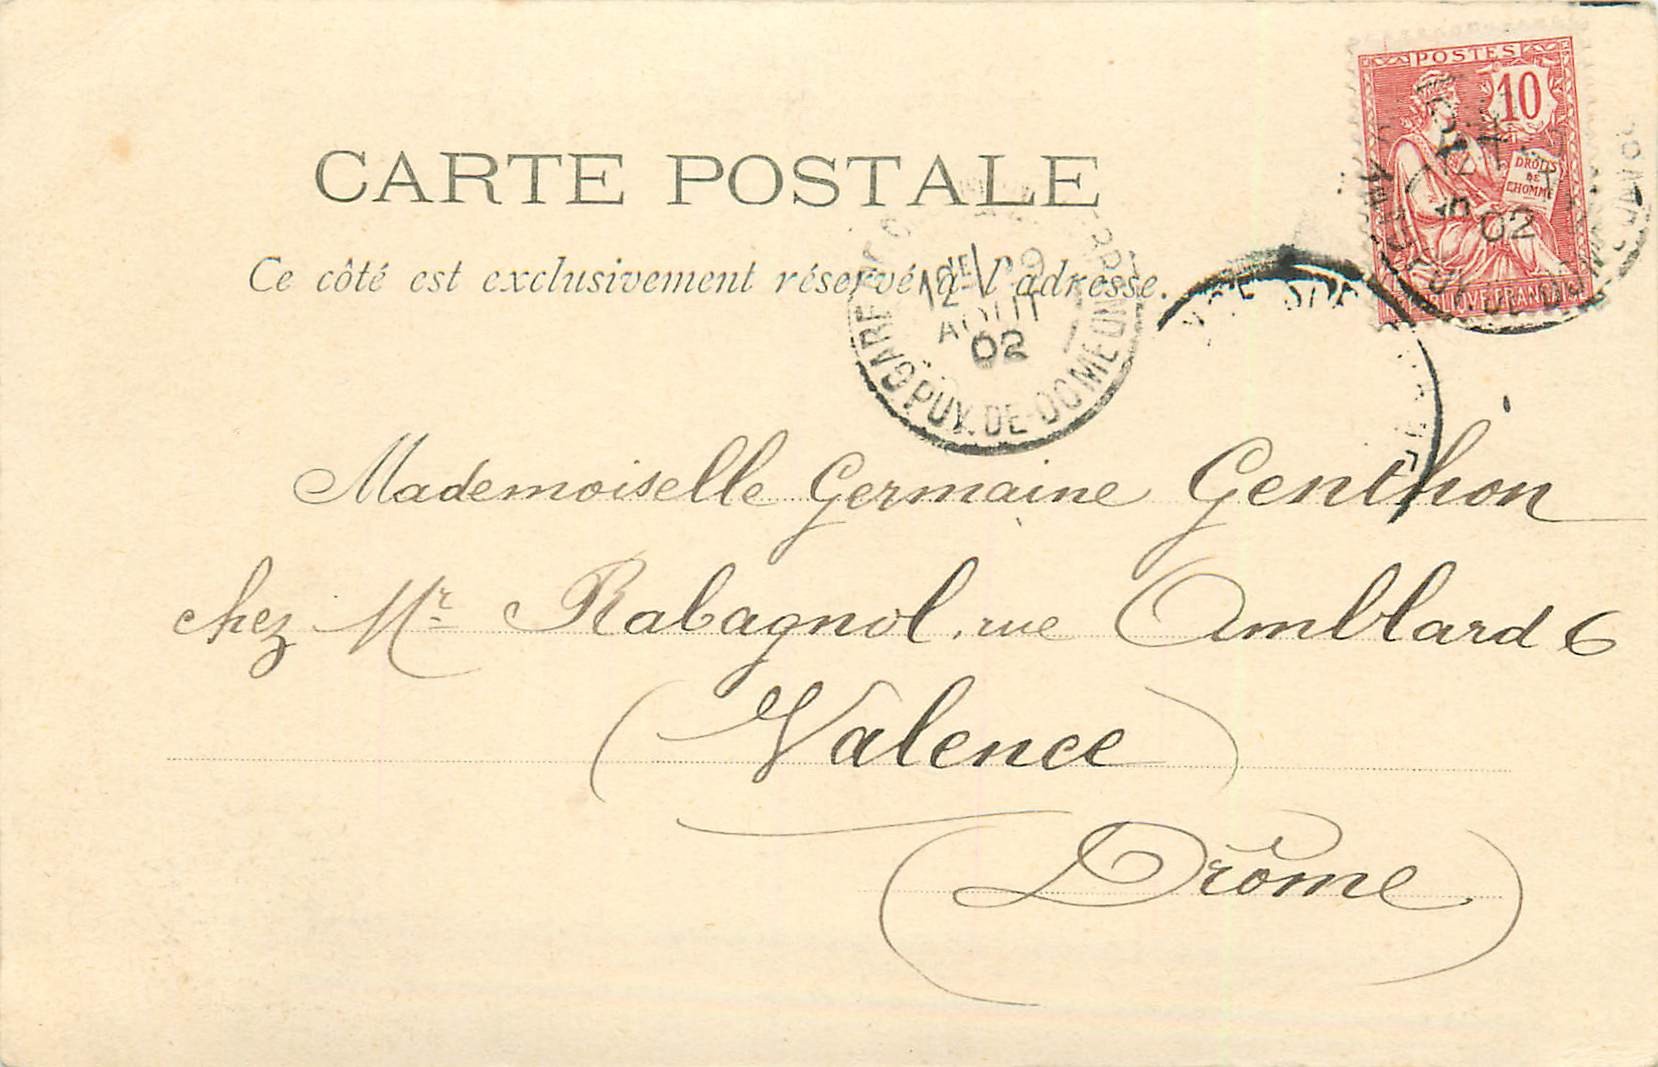 POSTES
10
DROITS
DE
L'HOMME
02
CARTE POSTALE
Ce côté est exclusivement réservé à l'adresse.
GARE DE
12E
AOUT
02
PUY-DE-DOME
Mademoiselle Germaine Genthon
chez Mr Rabagnol, rue Amblard 6
(Valence)
(Drôme)